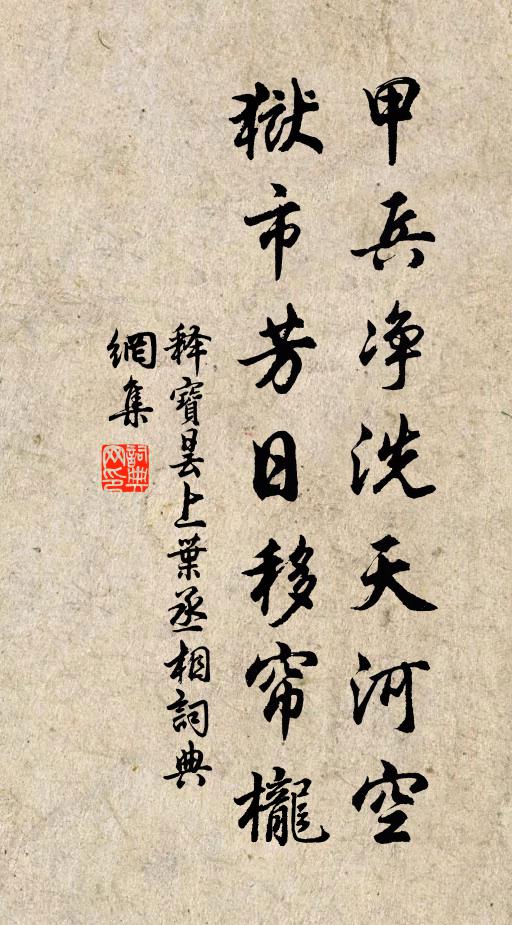 甲兵净洗天河空
狱市芳日移帘櫳
释寶昙上葉丞相詞典
網集
詞典
网印